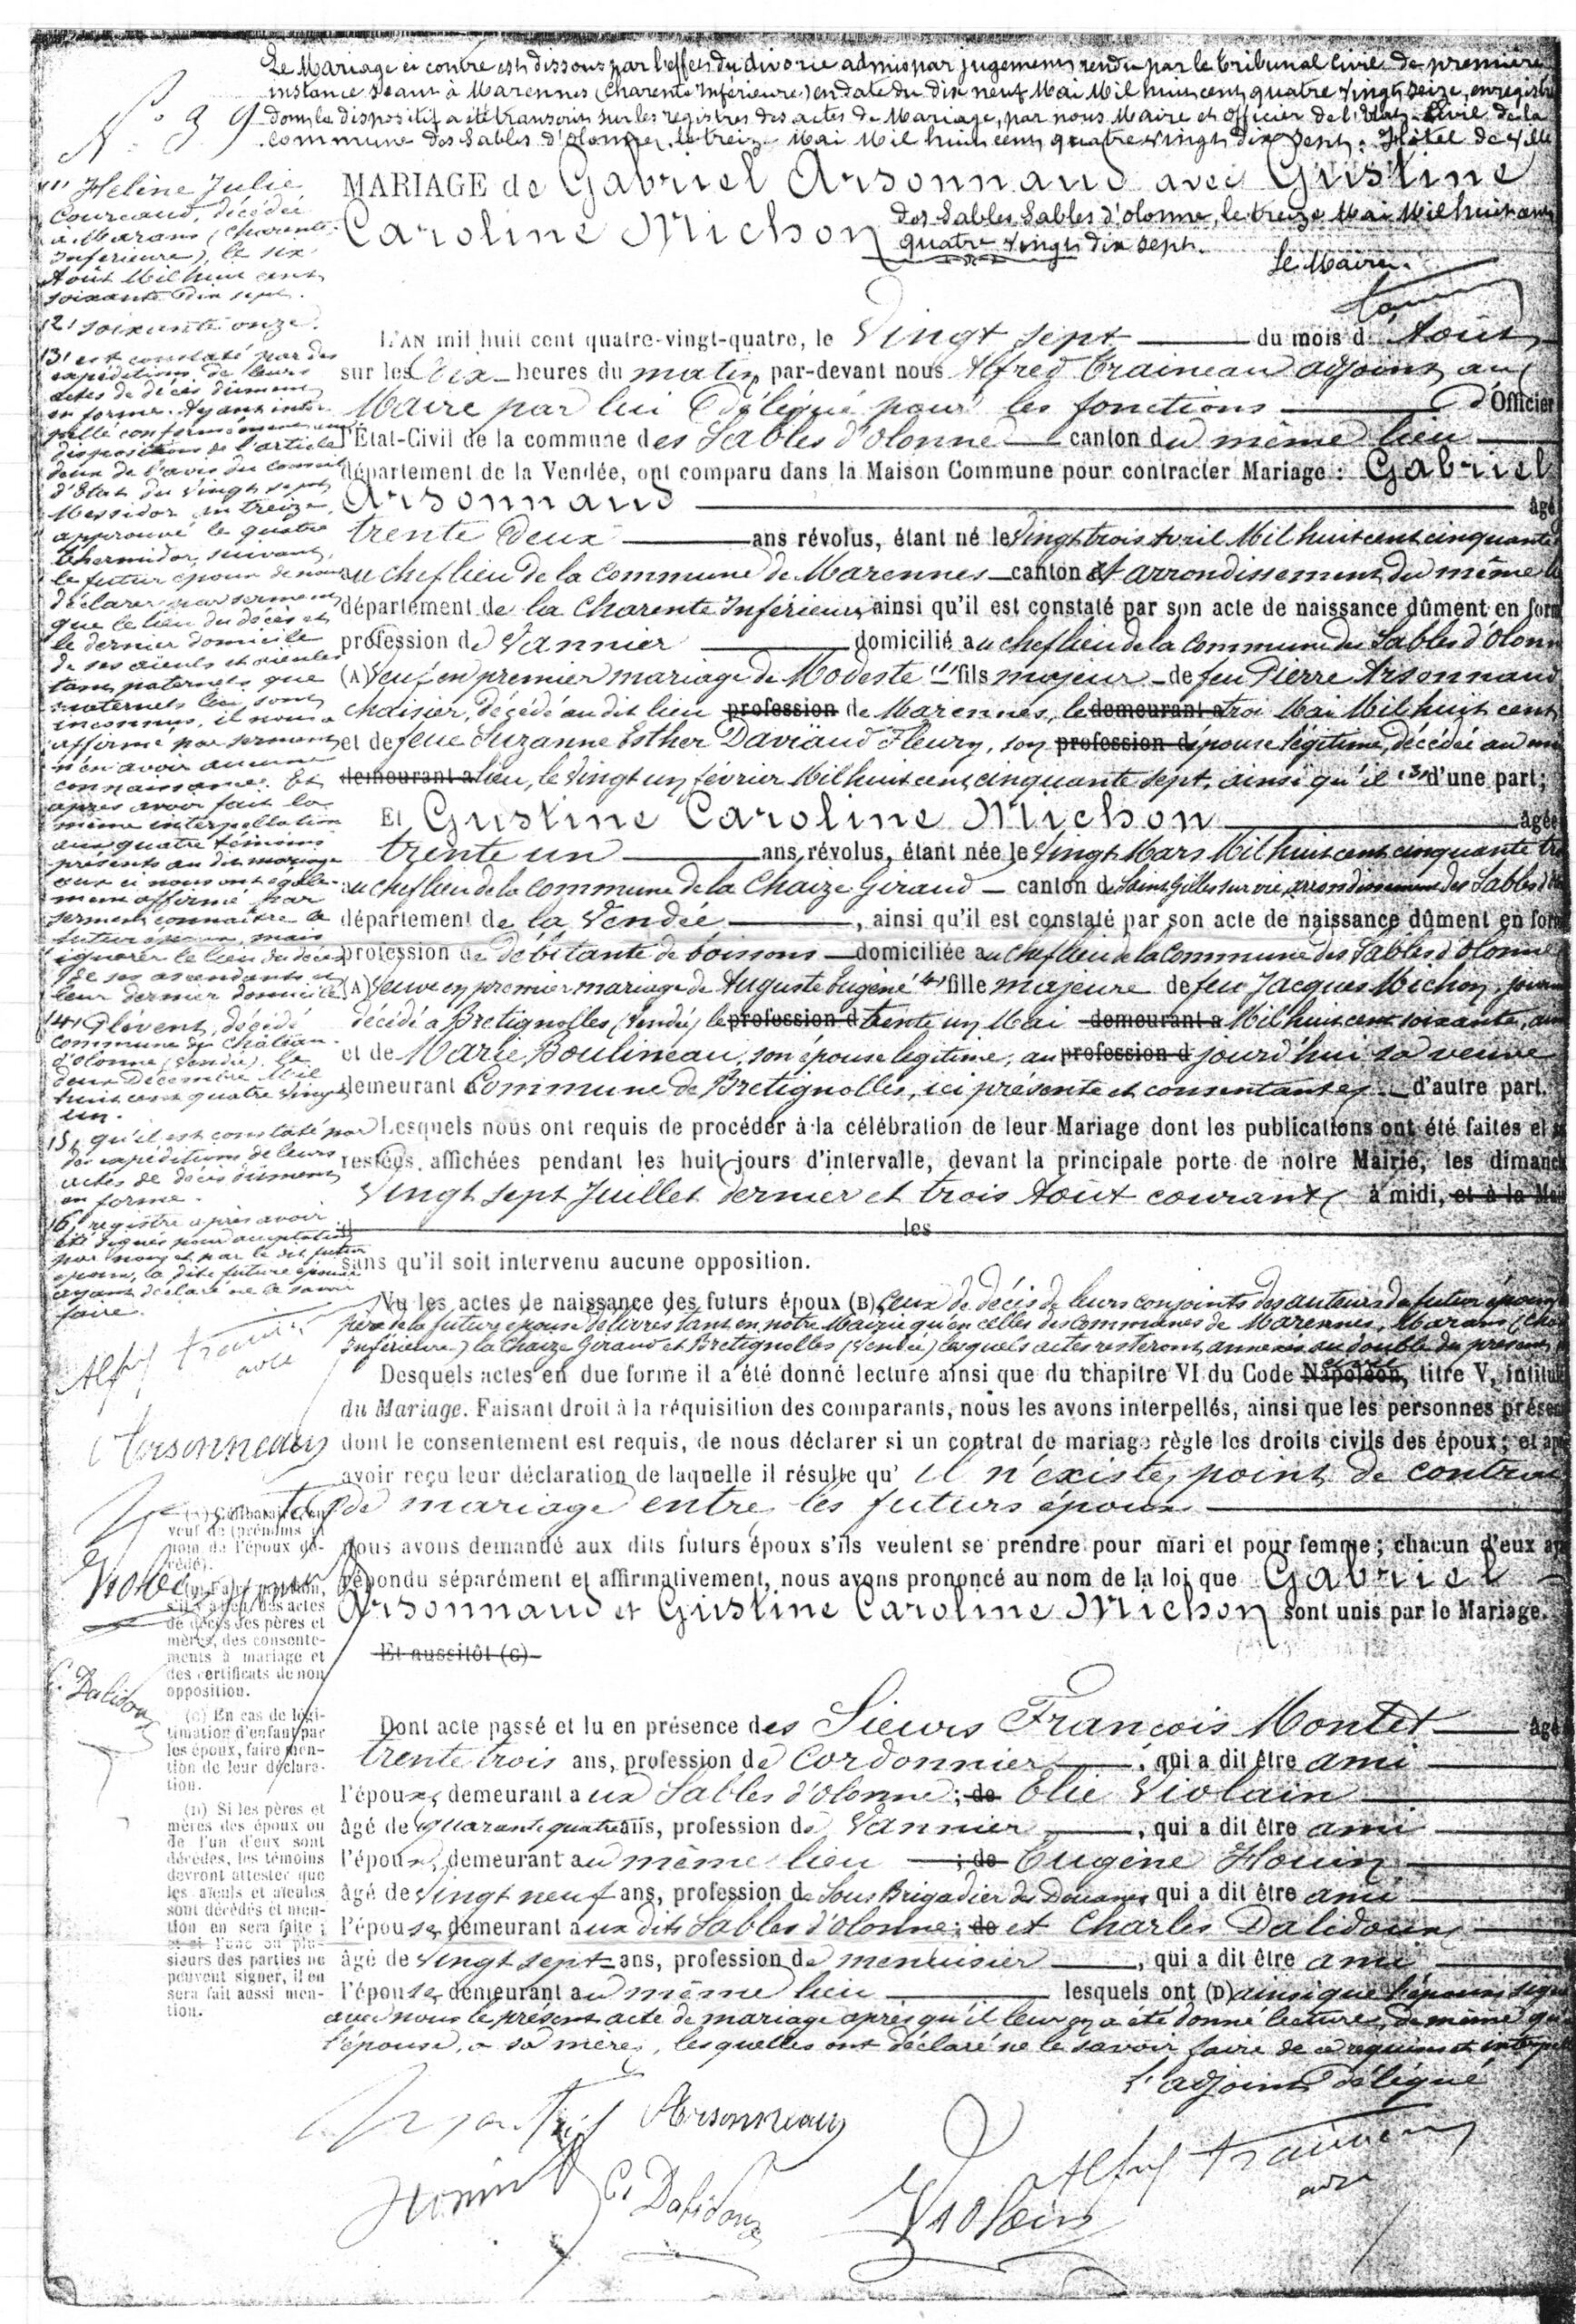 Le Mariage ci contre est dissous par l'effet du divorce admis par jugement rendu par le tribunal Civil de première
instance séant à Marennes (Charente Inférieure) en date du dix neuf Mai Mil huit cent quatre vingt seize, enregistré
dont le dispositif a été transcrit sur les registres des actes de Mariage, par nous Maire et officier de l'état Civil de la
commune des Sables d'Olonne, le treize Mai Mil huit cent quatre vingt dix sept. Hôtel de Ville
des Sables Sables d'olonne, le treize Mai Mil huit cent
quatre vingt dix sept.
Le Maire.
N° 39
MARIAGE de Gabriel Arsonnaud avec Gustine
Caroline Michon
(1) Heline Julie
Courcaud, décédée
à Marans (Charente-
Inférieure), le six
Août Mil huit cent
soixante dix sept.
(2) soixante onze.
(3) est constaté par des
expéditions de leurs
actes de décès dûment
en forme. Ayant inter-
pellé conformément aux
dispositions de l'article
deux de l'avis du conseil
d'Etat du vingt sept
Messidor an treize,
approuvé le quatre
thermidor suivant,
le futur époux de nous
déclarer par serment
que le lieu du décès et
le dernier domicile
de ses aïeuls et aïeules
tant paternels que
maternels lui sont
inconnus, il nous a
affirmé par serment
n'en avoir aucune
connaissance. Et
après avoir fait la
même interpellation
aux quatre témoins
présents au dit mariage
ceux ci nous ont égale-
ment affirmé par
serment connaître le
futur époux, mais
ignorer le lieu du décès
de ses ascendants et
leur dernier domicile
(4) Plévent, décédé
commune de Château-
d'olonne (Vendée), le
deux Décembre Mil
huit cent quatre vingt
un.
(5) qu'il est constaté par
des expéditions de leurs
actes de décès dûment
en forme.
(6) registre après avoir
été signés pour acceptation
par nous et par le dit futur
époux, la dite future épouse
ayant déclaré ne le savoir
faire.
L'AN mil huit cent quatre-vingt-quatre, le Vingt sept du mois d' Août
sur les dix heures du matin, par-devant nous Alfred Traineau adjoint au
Maire par lui délégué pour les fonctions d'Officier
l'Etat-Civil de la commune des Sables d'Olonne canton du même lieu
département de la Vendée, ont comparu dans la Maison Commune pour contracter Mariage : Gabriel
Arsonnaud âgé
trente deux ans révolus, étant né le Vingt trois Avril Mil huit cent cinquante
au chef lieu de la Commune de Marennes canton et arrondissement du même
département de la Charente Inférieure, ainsi qu'il est constaté par son acte de naissance dûment en for
profession de Vannier domicilié au chef lieu de la Commune des Sables d'Olonn
(A) Veuf en premier mariage de Modeste (1) fils majeur de feu Pierre Arsonnaud
chaisier, décédé au dit lieu profession de Marennes, le demeurant à Mai Mil huit cent
et de feue Suzanne Esther Daviaud Fleury, son profession d épouse légitime, décédée au
demeurant à lieu, le Vingt un février Mil huit cent cinquante sept, ainsi qu'il (3) d'une part ;
Et Gustine Caroline Michon âgée
trente un ans révolus, étant née le Vingt Mars Mil huit cent cinquante
au chef lieu de la Commune de la Chaize Giraud canton de Saint Gilles sur vie, arrondissement des Sables
département de la Vendée, ainsi qu'il est constaté par son acte de naissance dûment en for
profession de débitante de boissons domiciliée au chef lieu de la Commune des Sables d'Olonne
(A) Veuve en premier mariage de Auguste Eugène (4) fille majeure de feu Jacques Michon,
décédé à Bretignolles (Vendée) le profession d trente un Mai demeurant à Mil huit cent soixante,
et de Marie Boulineau, son épouse légitime, au profession d jourd'hui sa veuve
demeurant Commune de Bretignolles, ici présente et consentante d'autre part.
Lesquels nous ont requis de procéder à la célébration de leur Mariage dont les publications ont été faites et
restées affichées pendant les huit jours d'intervalle, devant la principale porte de notre Mairie, les dimanc
Vingt sept Juillet dernier et trois Août courant, à midi, et à la
les
sans qu'il soit intervenu aucune opposition.
Vu les actes de naissance des futurs époux (B) Ceux de décès de leurs conjoints des auteurs du futur époux
père de la future épouse délivrés tant en notre Mairie qu'en celles des Communes de Marennes, Marans
Inférieure) la Chaize Giraud et Bretignolles (Vendée) lesquels actes resteront annexés au double du présent
Desquels actes en due forme il a été donné lecture ainsi que du chapitre VI du Code Napoléon, titre V, intitul
du Mariage. Faisant droit à la réquisition des comparants, nous les avons interpellés, ainsi que les personnes prése
dont le consentement est requis, de nous déclarer si un contrat de mariage règle les droits civils des époux ; et ap
avoir reçu leur déclaration de laquelle il résulte qu' il n'existe point de contra
de mariage entre les futurs époux
nous avons demandé aux dits futurs époux s'ils veulent se prendre pour mari et pour femme ; chacun d'eux
répondu séparément et affirmativement, nous avons prononcé au nom de la loi que Gabriel
Arsonnaud et Gustine Caroline Michon sont unis par le Mariage.
Et aussitôt (C)
Dont acte passé et lu en présence des Sieurs François Montet âgé
trente trois ans, profession de Cordonnier, qui a dit être ami
l'époux, demeurant aux Sables d'Olonne ; de Elie Violain
âgé de quarante quatre ans, profession de Vannier, qui a dit être ami
l'époux, demeurant au même lieu ; de Eugène Houin
âgé de Vingt neuf ans, profession de Sous Brigadier de Douanes qui a dit être ami
l'épouse, demeurant aux dits Sables d'Olonne ; de et Charles Dalidoux
âgé de Vingt sept ans, profession de menuisier, qui a dit être ami
l'épouse, demeurant au même lieu lesquels ont (D) ainsi que l'époux signé
avec nous le présent acte de mariage après qu'il leur en a été donné lecture, de même
l'épouse, et sa mère, lesquelles ont déclaré ne le savoir faire de ce requises et
L'adjoint délégué
Alfred Traineau
Arsonneaux
Violain
C. Dalidoux
(A) Célibataire ou
veuf de (prénoms et
nom de l'époux dé-
cédé).
s'il y a lieu, des actes
de décès des pères et
mères, des consente-
ments à mariage et
des certificats de non
opposition.
(C) En cas de légi-
timation d'enfant par
les époux, faire men-
tion de leur déclara-
tion.
(D) Si les pères et
mères des époux ou
de l'un d'eux sont
décédés, les témoins
devront attester que
les aïeuls et aïeules
sont décédés et men-
tion en sera faite ;
et si l'une ou plu-
sieurs des parties ne
peuvent signer, il en
sera fait aussi men-
tion.
Arsonneaux
Houin
C. Dalidoux
Violain
Alfred Traineau